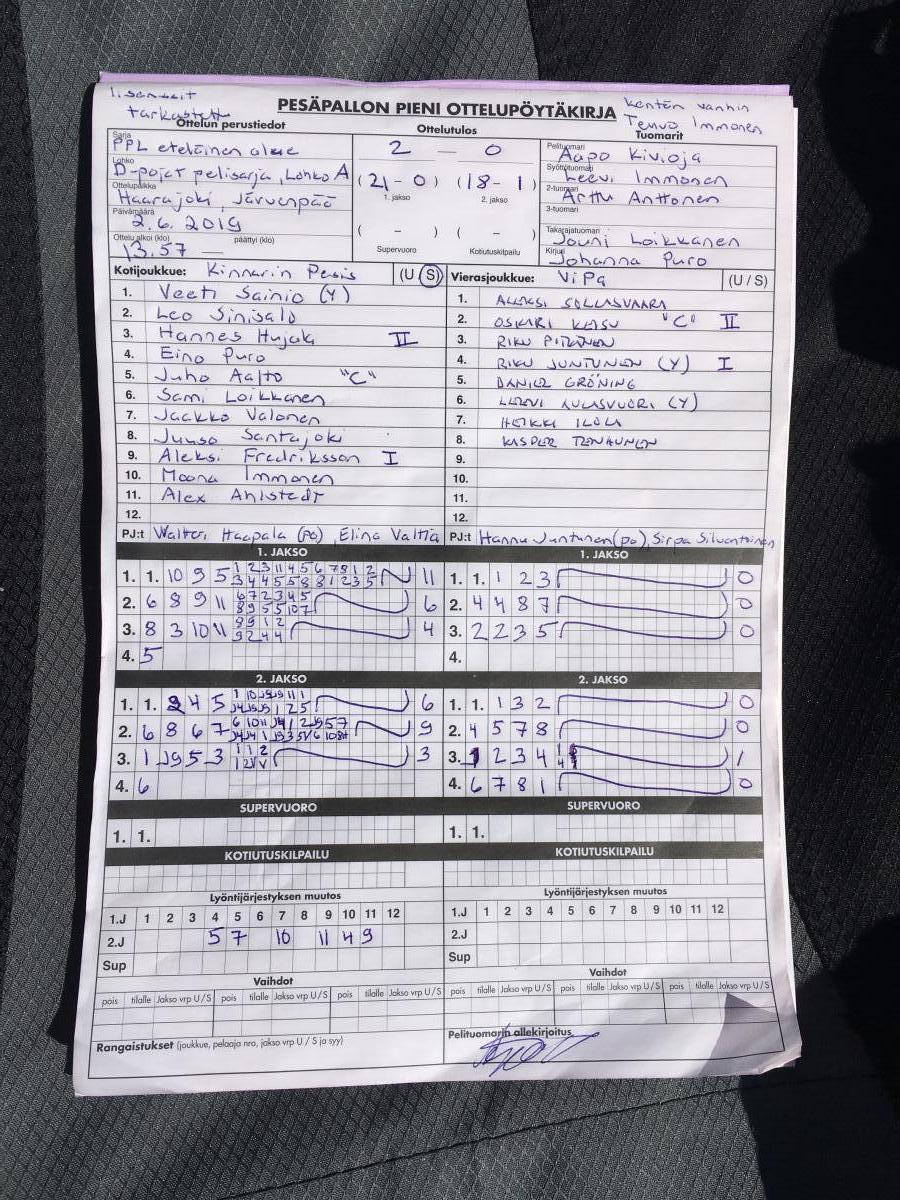 lisenssit
tarkastettu
PESÄPALLON PIENI OTTELUPÖYTÄKIRJA
Kentän vanhin
Teuvo Immonen
Ottelun perustiedot
Ottelutulos
Tuomarit
Sarja
PPL eteläinen alue
Lohko
D-pojat pelisarja, Lohko A
Ottelupaikka
Haarajoki, Järvenpää
Päivämäärä
2.6.2019
Ottelu alkoi (klo) päättyi (klo)
13.57
2 — 0
(21 - 0) (18 - 1)
1. jakso 2. jakso
( - ) ( - )
Supervuoro Kotiutuskilpailu
Pelituomari
Aapo Kivioja
Syöttötuomari
Leevi Immonen
2-tuomari
Arttu Anttonen
3-tuomari
Takarajatuomari
Jouni Loikkanen
Kirjuri
Johanna Puro
Kotijoukkue: Kinnarin Pesis (U / S)
1. Veeti Sainio (Y)
2. Leo Sinisalo
3. Hannes Hujala II
4. Eino Puro
5. Juho Aalto "C"
6. Sami Loikkanen
7. Jaakko Valonen
8. Juuso Santajoki
9. Aleksi Fredriksson I
10. Moona Immonen
11. Alex Ahlstedt
12.
PJ:t Walter Haapala (pa), Elina Valtia
Vierasjoukkue: ViPa (U / S)
1. ALEKSI SOLLASVAARA
2. OSKARI KEISU "C" II
3. RIKU PITKÄNEN
4. RIKU JUNTUNEN (Y) I
5. DANIEL GRÖNING
6. LEEVI KULASVUORI (Y)
7. HEIKKI ILOLA
8. KASPER TENHUNEN
9.
10.
11.
12.
PJ:t Hannu Juntunen (pa), Sirpa Silventoinen
1. JAKSO
1. 1. 10 9 5 11
2. 6 8 9 11 6
3. 8 3 10 11 4
4. 5
1. JAKSO
1. 1. 1 2 3 0
2. 4 4 8 7 0
3. 2 2 3 5 0
4.
2. JAKSO
1. 1. 9 4 5 6
2. 6 8 6 7 9
3. 1 J9 5 3 3
4. 6
2. JAKSO
1. 1. 1 3 2 0
2. 4 5 7 8 0
3. 1 2 3 4 1
4. 6 7 8 1 0
SUPERVUORO
1. 1.
SUPERVUORO
1. 1.
KOTIUTUSKILPAILU
KOTIUTUSKILPAILU
Lyöntijärjestyksen muutos
1.J 1 2 3 4 5 6 7 8 9 10 11 12
2.J 5 7 10 11 4 9
Sup
Lyöntijärjestyksen muutos
1.J 1 2 3 4 5 6 7 8 9 10 11 12
2.J
Sup
Vaihdot
pois tilalle Jakso vrp U / S pois tilalle Jakso vrp U / S pois tilalle Jakso vrp U / S
Vaihdot
pois tilalle Jakso vrp U / S pois tilalle Jakso vrp U / S pois tilalle Jakso vrp U / S
Rangaistukset (joukkue, pelaaja nro, jakso vrp U / S ja syy)
Pelituomarin allekirjoitus